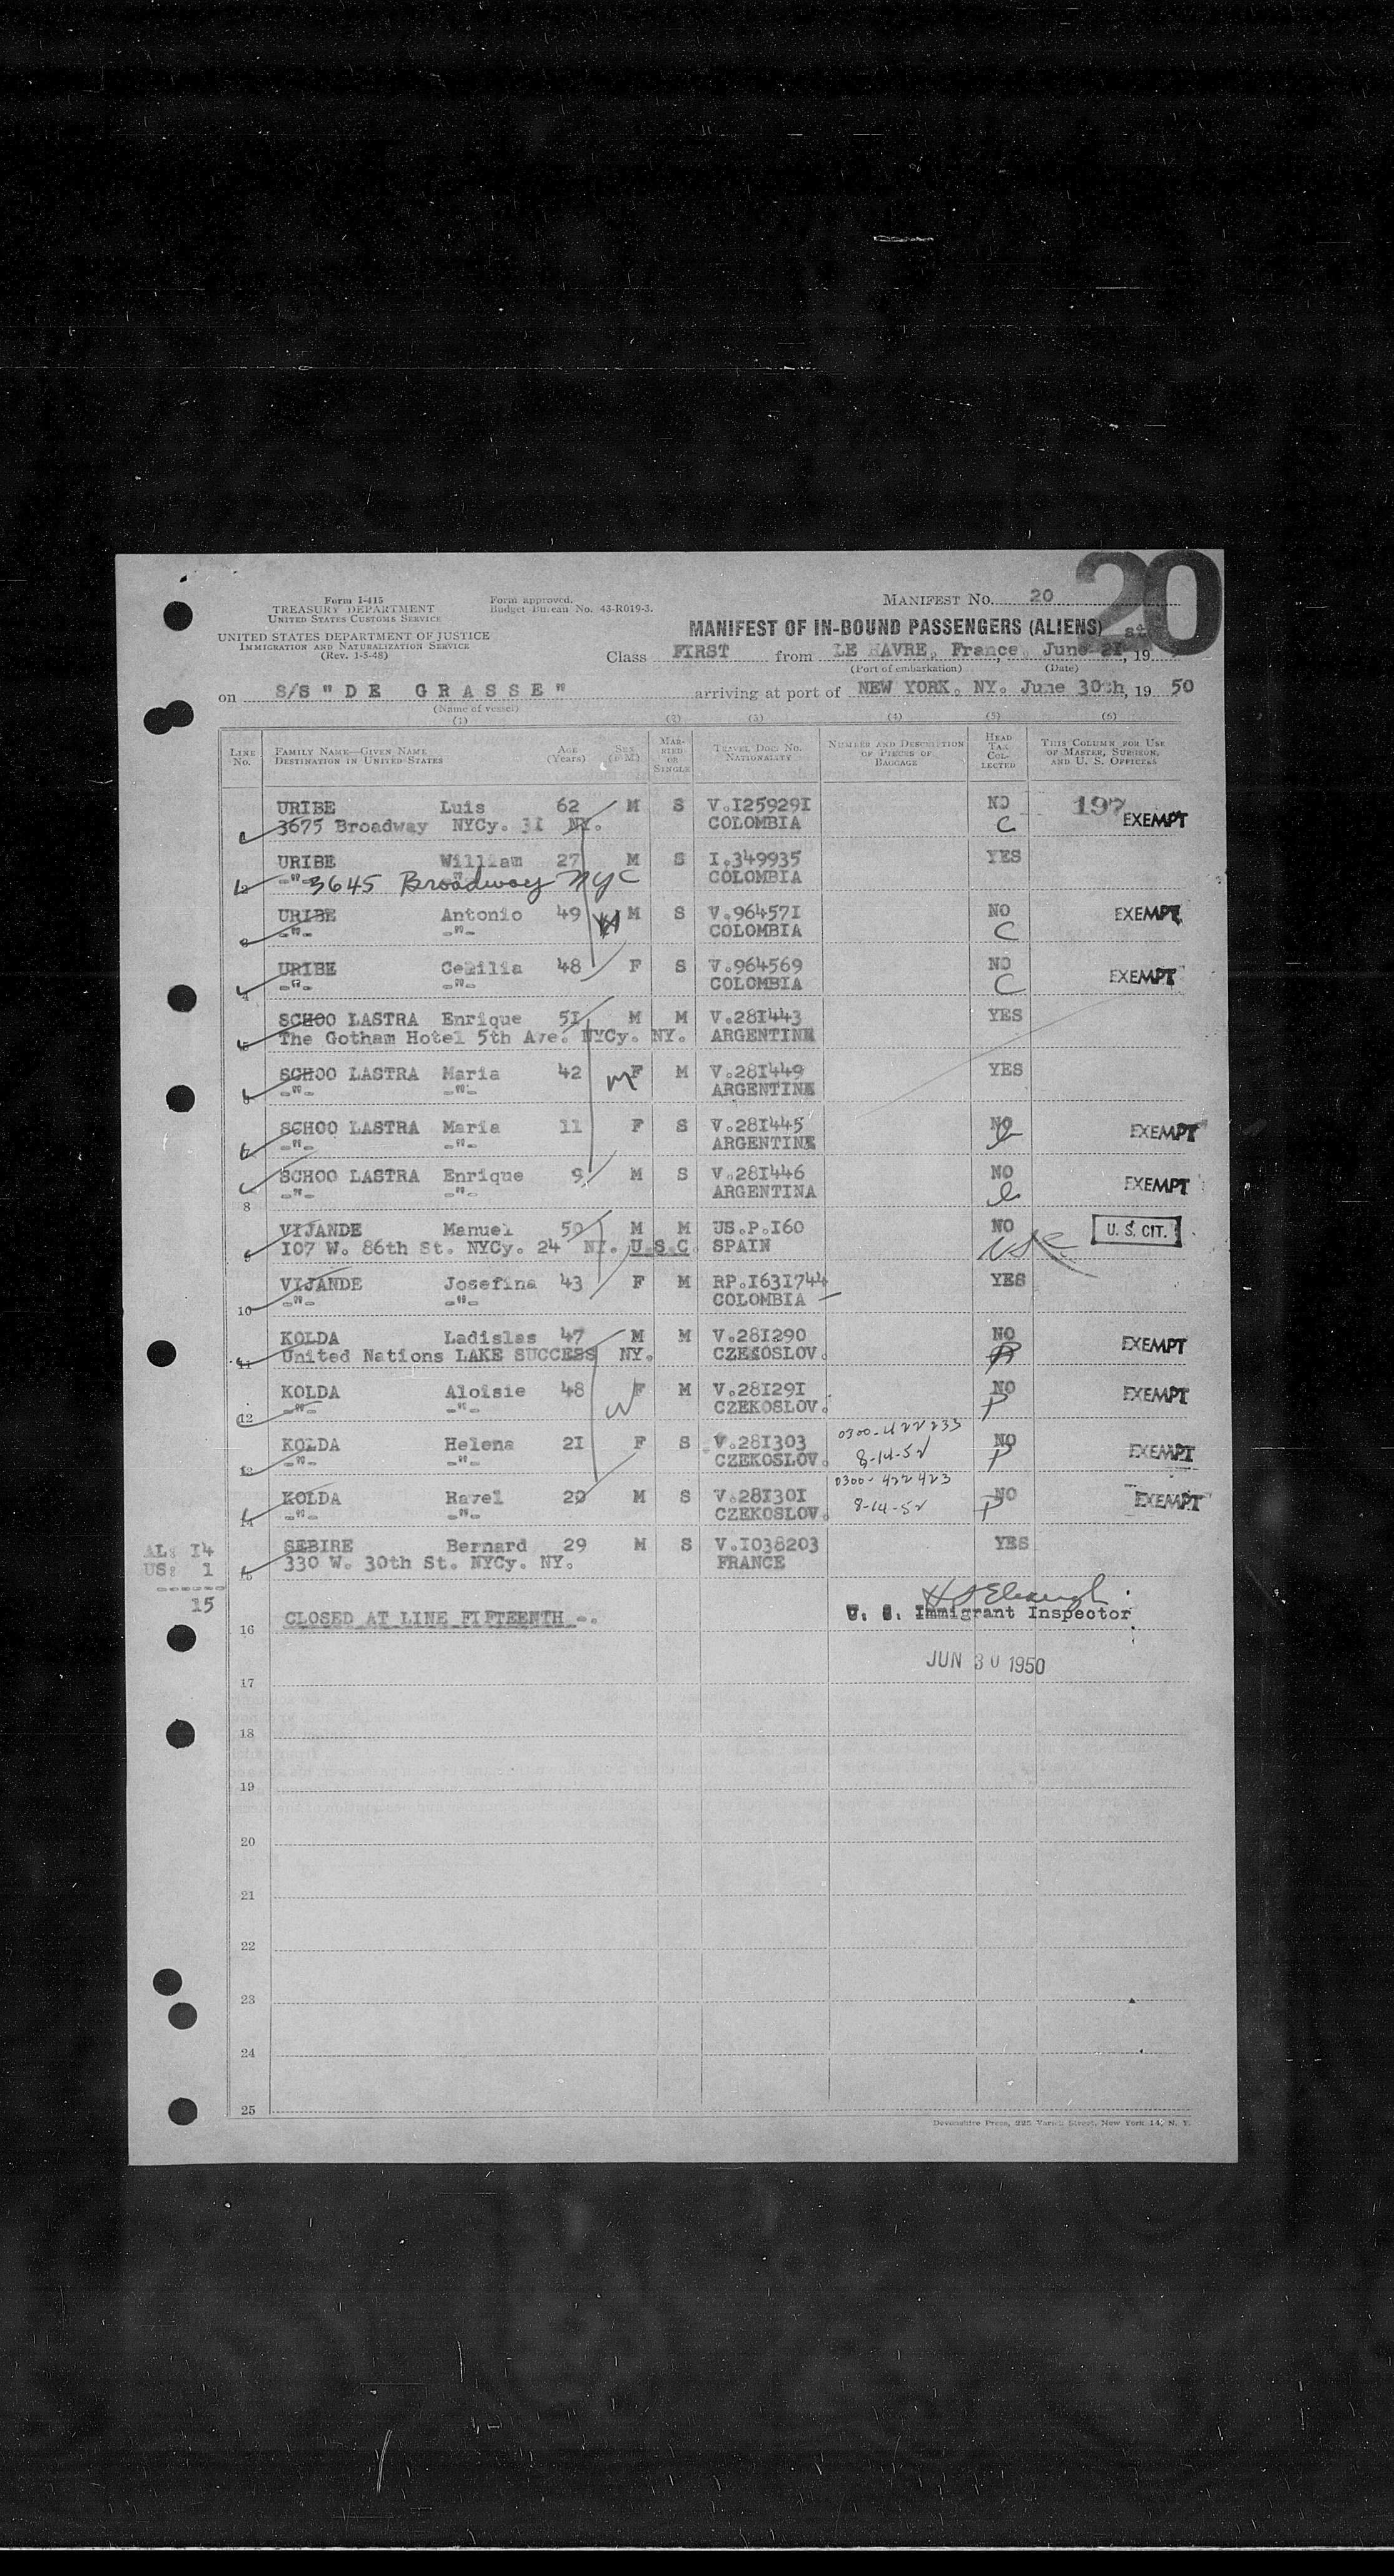 20
Form I-415
TREASURY DEPARTMENT
UNITED STATES CUSTOMS SERVICE
UNITED STATES DEPARTMENT OF JUSTICE
IMMIGRATION AND NATURALIZATION SERVICE
(Rev. 1-5-48)
Form approved.
Budget Bureau No. 43-R019-3.
MANIFEST NO. 20
MANIFEST OF IN-BOUND PASSENGERS (ALIENS)
Class FIRST from LE HAVRE, France, June 21, 19
(Port of embarkation) (Date)
on S/S "DE GRASSE" arriving at port of NEW YORK. NY. June 30th, 19 50
(Name of vessel)
(1) (2) (3) (4) (5) (6)
LINE No. FAMILY NAME—GIVEN NAME DESTINATION IN UNITED STATES AGE (Years) SEX (F M) MARRIED OR SINGLE TRAVEL DOC. NO. NATIONALITY NUMBER AND DESCRIPTION OF PIECES OF BAGGAGE HEAD TAX COLLECTED THIS COLUMN FOR USE OF MASTER, SURGEON, AND U. S. OFFICERS
URIBE Luis 62 M S V.I25929I NO 197
3675 Broadway NYCy. 3I NY. COLOMBIA C EXEMPT
URIBE William 27 M S I.349935 YES
2 -"- 3645 Broadway NYC COLOMBIA
URIBE Antonio 49 M S V.96457I NO EXEMPT
3 -"- -"- COLOMBIA C
URIBE Cecilia 48 F S V.964569 NO EXEMPT
4 -"- -"- COLOMBIA C
SCHOO LASTRA Enrique 5I M M V.28I443 YES
5 The Gotham Hotel 5th Ave. NYCy. NY. ARGENTINA
SCHOO LASTRA Maria 42 M F M V.28I449 YES
6 -"- -"- ARGENTINA
SCHOO LASTRA Maria 11 F S V.28I445 NO EXEMPT
7 -"- -"- ARGENTINA
SCHOO LASTRA Enrique 9 M S V.28I446 NO EXEMPT
8 -"- -"- ARGENTINA
VIJANDE Manuel 50 M M US.P.I60 NO U. S. CIT.
9 I07 W. 86th St. NYCy. 24 NY. U.S.C. SPAIN
VIJANDE Josefina 43 F M RP.I63I744 YES
10 -"- -"- COLOMBIA
KOLDA Ladislas 47 M M V.28I290 NO EXEMPT
11 United Nations LAKE SUCCESS NY. CZEKOSLOV.
KOLDA Aloisie 48 F M V.28I29I NO EXEMPT
12 -"- -"- CZEKOSLOV. P
KOLDA Helena 2I F S V.28I303 0300-422233 NO EXEMPT
13 -"- -"- CZEKOSLOV. 8-14-52 P
KOLDA Havel 20 M S V.28I30I 0300-422423 NO EXEMPT
14 -"- -"- CZEKOSLOV. 8-14-52 P
SEBIRE Bernard 29 M S V.I038203 YES
15 330 W. 30th St. NYCy. NY. FRANCE
AL: I4
US: 1
15
16 CLOSED AT LINE FIFTEENTH -.
U. S. Immigrant Inspector
JUN 30 1950
17
18
19
20
21
22
23
24
25
Devonshire Press, 225 Varick Street, New York 14, N. Y.